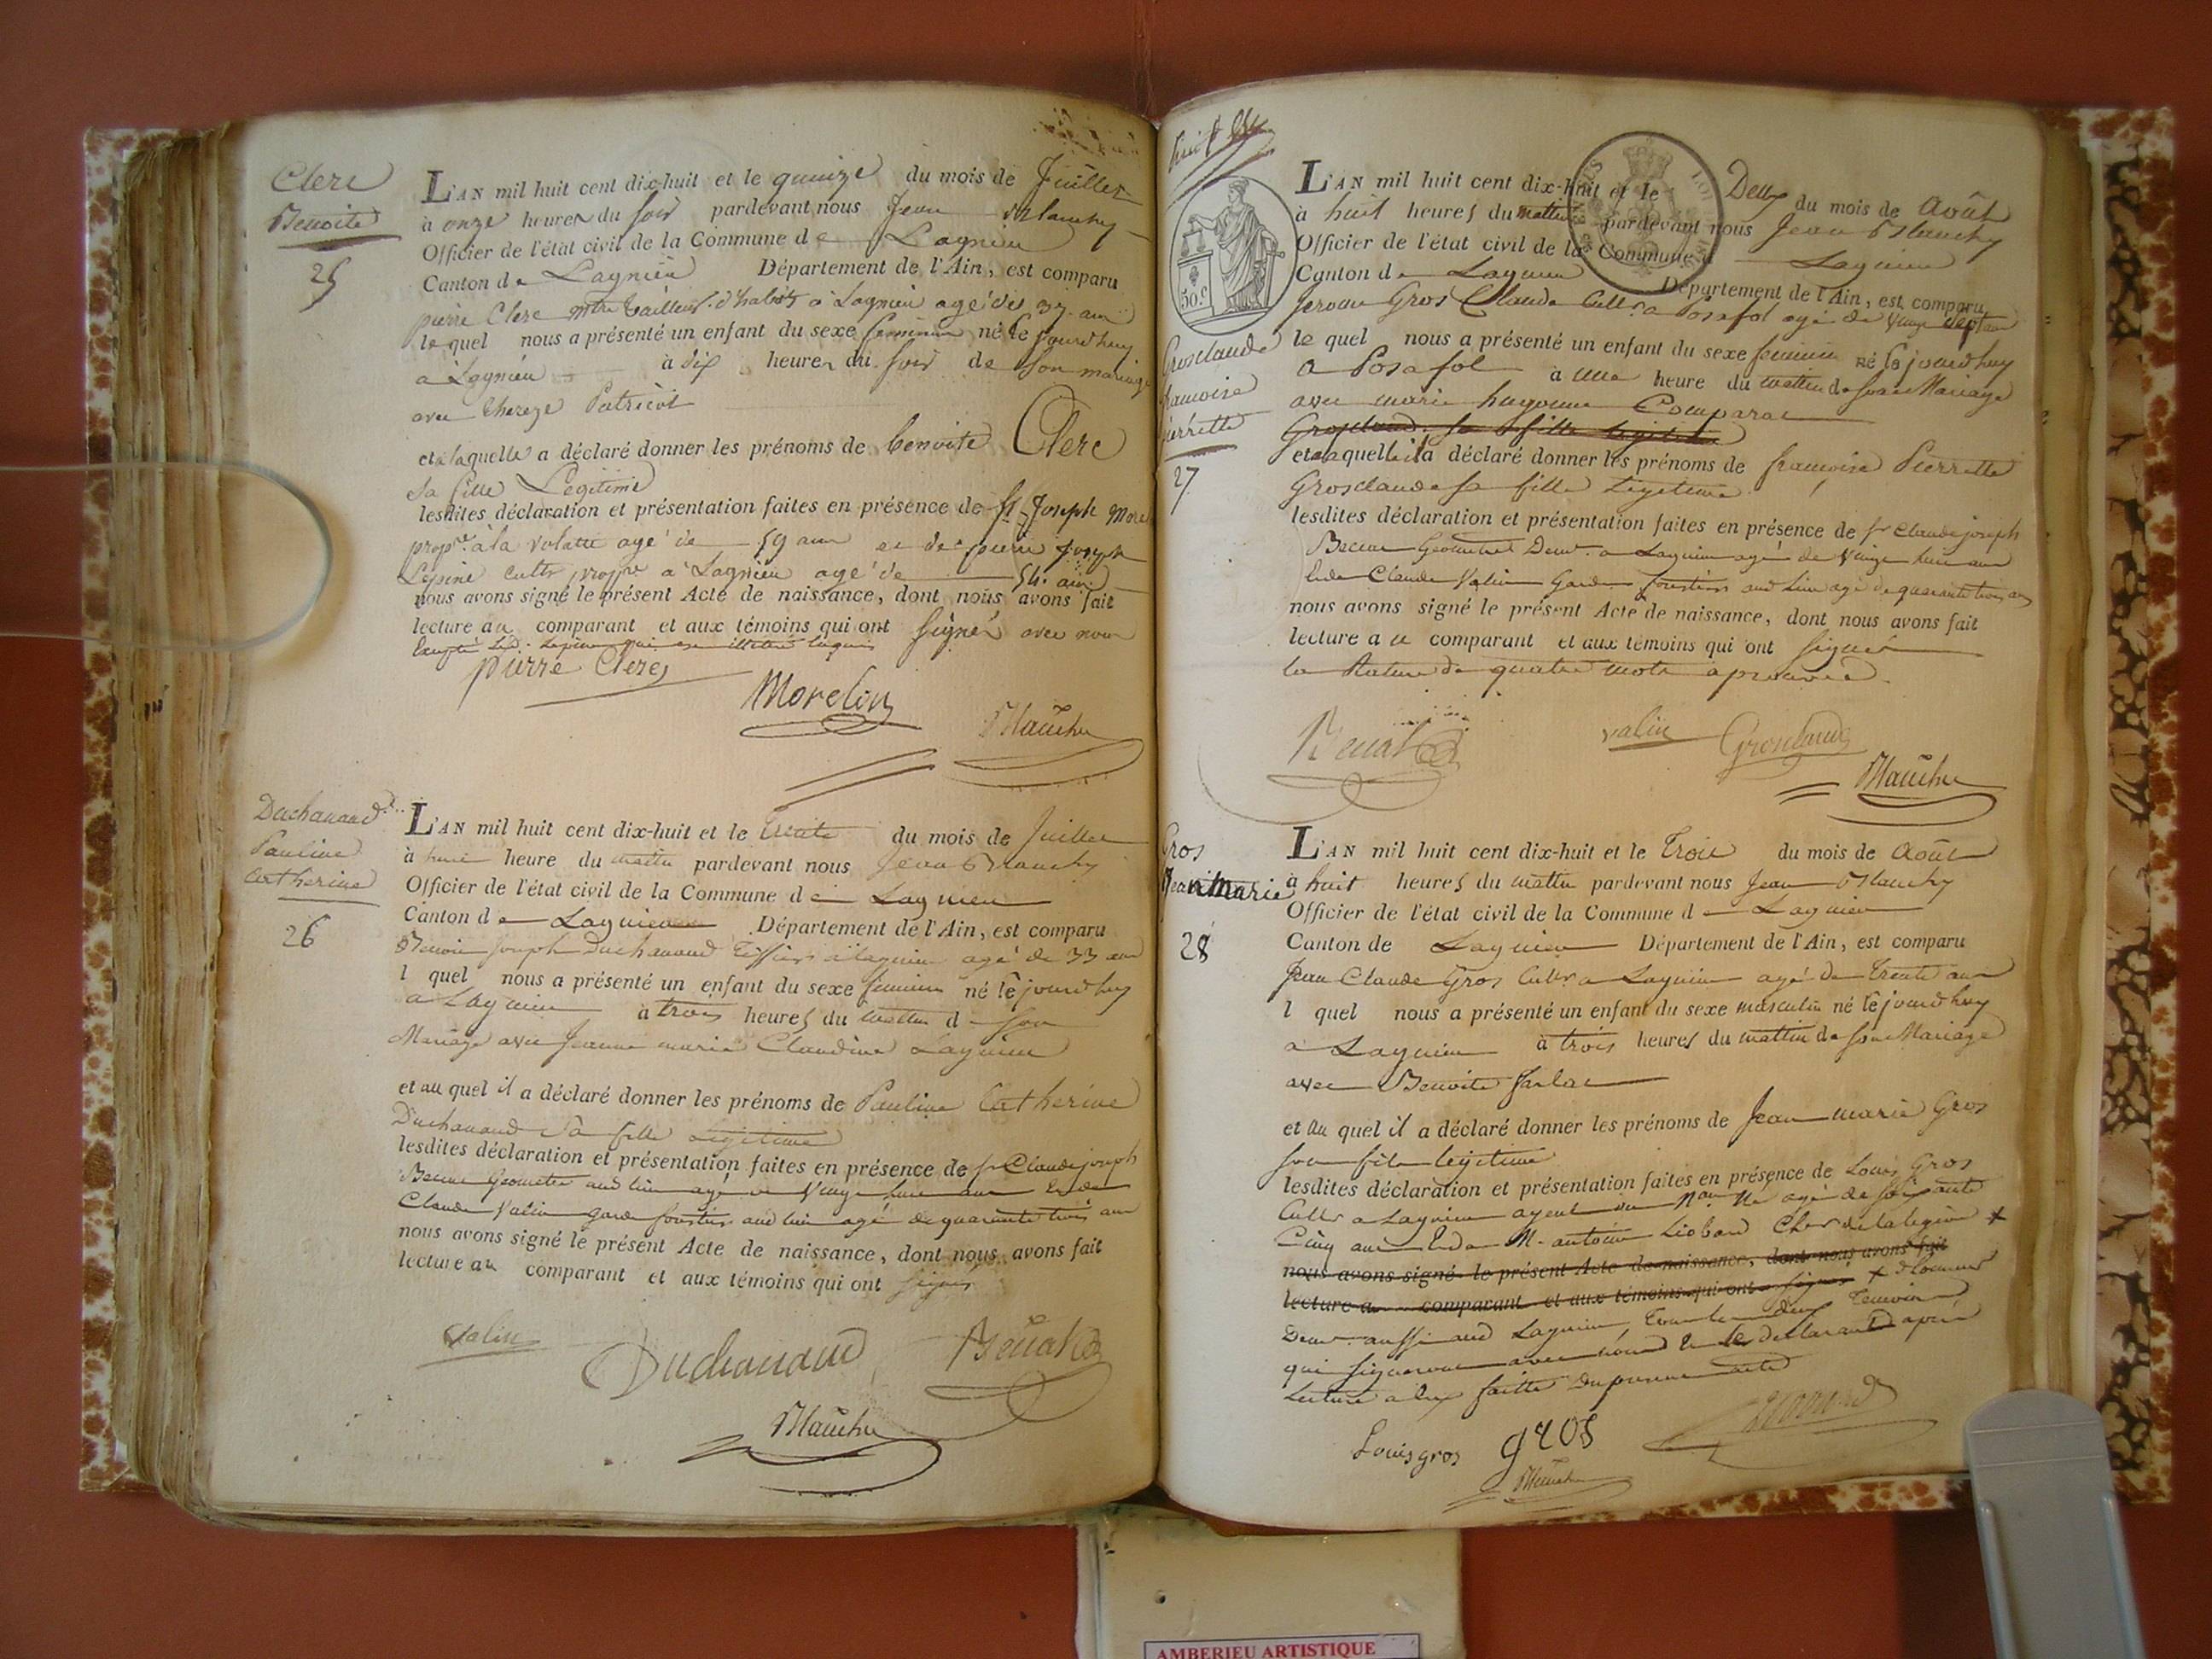 Clerc
Benoite
25
L'AN mil huit cent dix-huit et le quinze du mois de Juillet
à onze heures du soir pardevant nous Jean
Officier de l'état civil de la Commune de Lagnieu
Canton de Lagnieu Département de l'Ain, est comparu
pierre Clerc mtre tailleur d'habits à Lagnieu agé de 37 ans
le quel nous a présenté un enfant du sexe feminin né le jourdhuy
à Lagnieu à dix heures du soir de son mariage
avec Thereze Patricot
et a laquelle a déclaré donner les prénoms de benoite Clerc
sa fille Legitime
lesdites déclaration et présentation faites en présence de Sr Joseph
propre à la volatte agé de 59 ans et de pierre Joseph
Lépine cultr propre à Lagnieu agé de 54 ans
nous avons signé le présent Acte de naissance, dont nous avons fait
lecture au comparant et aux témoins qui ont signés avec nous
Excepté Led. Lepine qui est illitéré enquis
pierre Clerc
Morelon
Duchanaud
Pauline
Catherine
26
L'AN mil huit cent dix-huit et le trente du mois de Juillet
à heure du mattin pardevant nous Jean
Officier de l'état civil de la Commune de Lagnieu
Canton de Lagnieu Département de l'Ain, est comparu
Benoit Joseph Duchanaud Tissier à lagnieu agé de 33 ans
l quel nous a présenté un enfant du sexe feminin né le jourdhuy
a Lagnieu à trois heures du mattin de son
Mariage avec Jeanne marie Claudine Lagnieu
et au quel il a déclaré donner les prénoms de Pauline Catherine
Duchanaud sa fille Legitime
lesdites déclaration et présentation faites en présence de Sr Claude joseph
Geometre aud lieu agé de vingt huit ans et de
Claude Valin garde forestier aud lieu agé de quarante trois ans
nous avons signé le présent Acte de naissance, dont nous avons fait
lecture au comparant et aux témoins qui ont signés
Valin
Duchanaud
50 c
Grosclaude
francoise
pierrette
27
L'AN mil huit cent dix-huit et le Deux du mois de Août
à huit heures du mattin pardevant nous Jean
Officier de l'état civil de la Commune Lagnieu
Canton de Lagnieu Département de l'Ain, est comparu
Jerome Gros Claude Cultr a Posafol agé de vingt sept ans
le quel nous a présenté un enfant du sexe feminin né le jourdhuy
a Posafol à une heure du mattin de son Mariage
avec marie hugonne
Grosclaude sa fille legitime
et a laquelle il a déclaré donner les prénoms de françoise Pierrette
Grosclaude sa fille Legitime
lesdites déclaration et présentation faites en présence de Sr Claude joseph
Geometre Demt a Lagnieu agé de vingt huit ans
et de Claude Valin Garde forestier aud Lieu agé de quarante trois ans
nous avons signé le présent Acte de naissance, dont nous avons fait
lecture au comparant et aux témoins qui ont signés
la Rature de quatre mots aprouvée
valin
Grosclaude
Gros
Jean Marie
28
L'AN mil huit cent dix-huit et le trois du mois de Août
à huit heures du mattin pardevant nous Jean
Officier de l'état civil de la Commune de Lagnieu
Canton de Lagnieu Département de l'Ain, est comparu
Jean Claude Gros Cultr a Lagnieu agé de trente ans
l quel nous a présenté un enfant du sexe masculin né le jourdhuy
a Lagnieu à trois heures du mattin de son Mariage
avec Benoite
et au quel il a déclaré donner les prénoms de Jean marie Gros
son fils legitime
lesdites déclaration et présentation faites en présence de Louis Gros
Cultr a Lagnieu ayeul du Nau Né agé de soixante
Cinq ans et de M. antoine Liobard Cher de la legion +
nous avons signé le présent Acte de naissance, dont nous avons fait
lecture au comparant et aux témoins qui ont signés + dhonneur
Demt aussi aud Lagnieu, tous les deux Temoins
qui signeront avec nous et le declarant après
Lecture a eux faitte du present acte
Louis gros
gros
AMBERIEU ARTISTIQUE